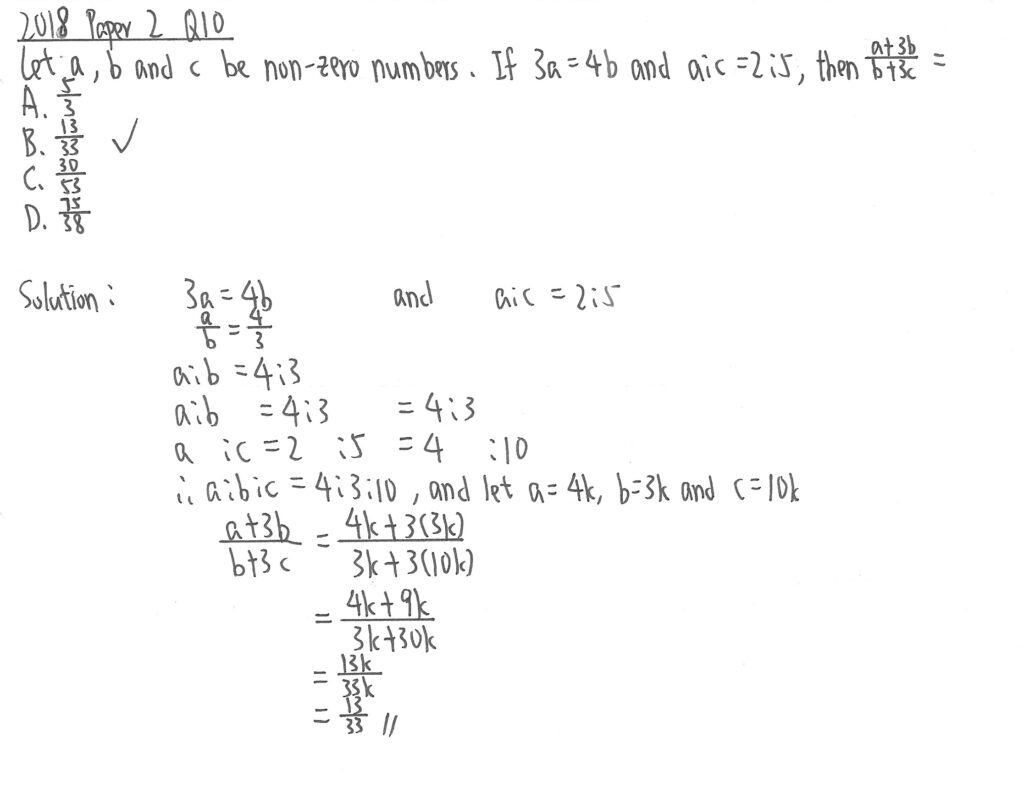 2018 Paper 2 Q10
Let a, b and c be non-zero numbers. If 3a = 4b and a:c = 2:5, then (a+3b)/(b+3c) =
A. 5/3
B. 13/33 ✓
C. 30/53
D. 75/38
Solution: 3a = 4b and a:c = 2:5
a/b = 4/3
a:b = 4:3
a:b = 4:3 = 4:3
a :c = 2 :5 = 4 :10
∴ a:b:c = 4:3:10, and let a = 4k, b = 3k and c = 10k
(a+3b)/(b+3c) = (4k+3(3k))/(3k+3(10k))
= (4k+9k)/(3k+30k)
= 13k/33k
= 13/33 //